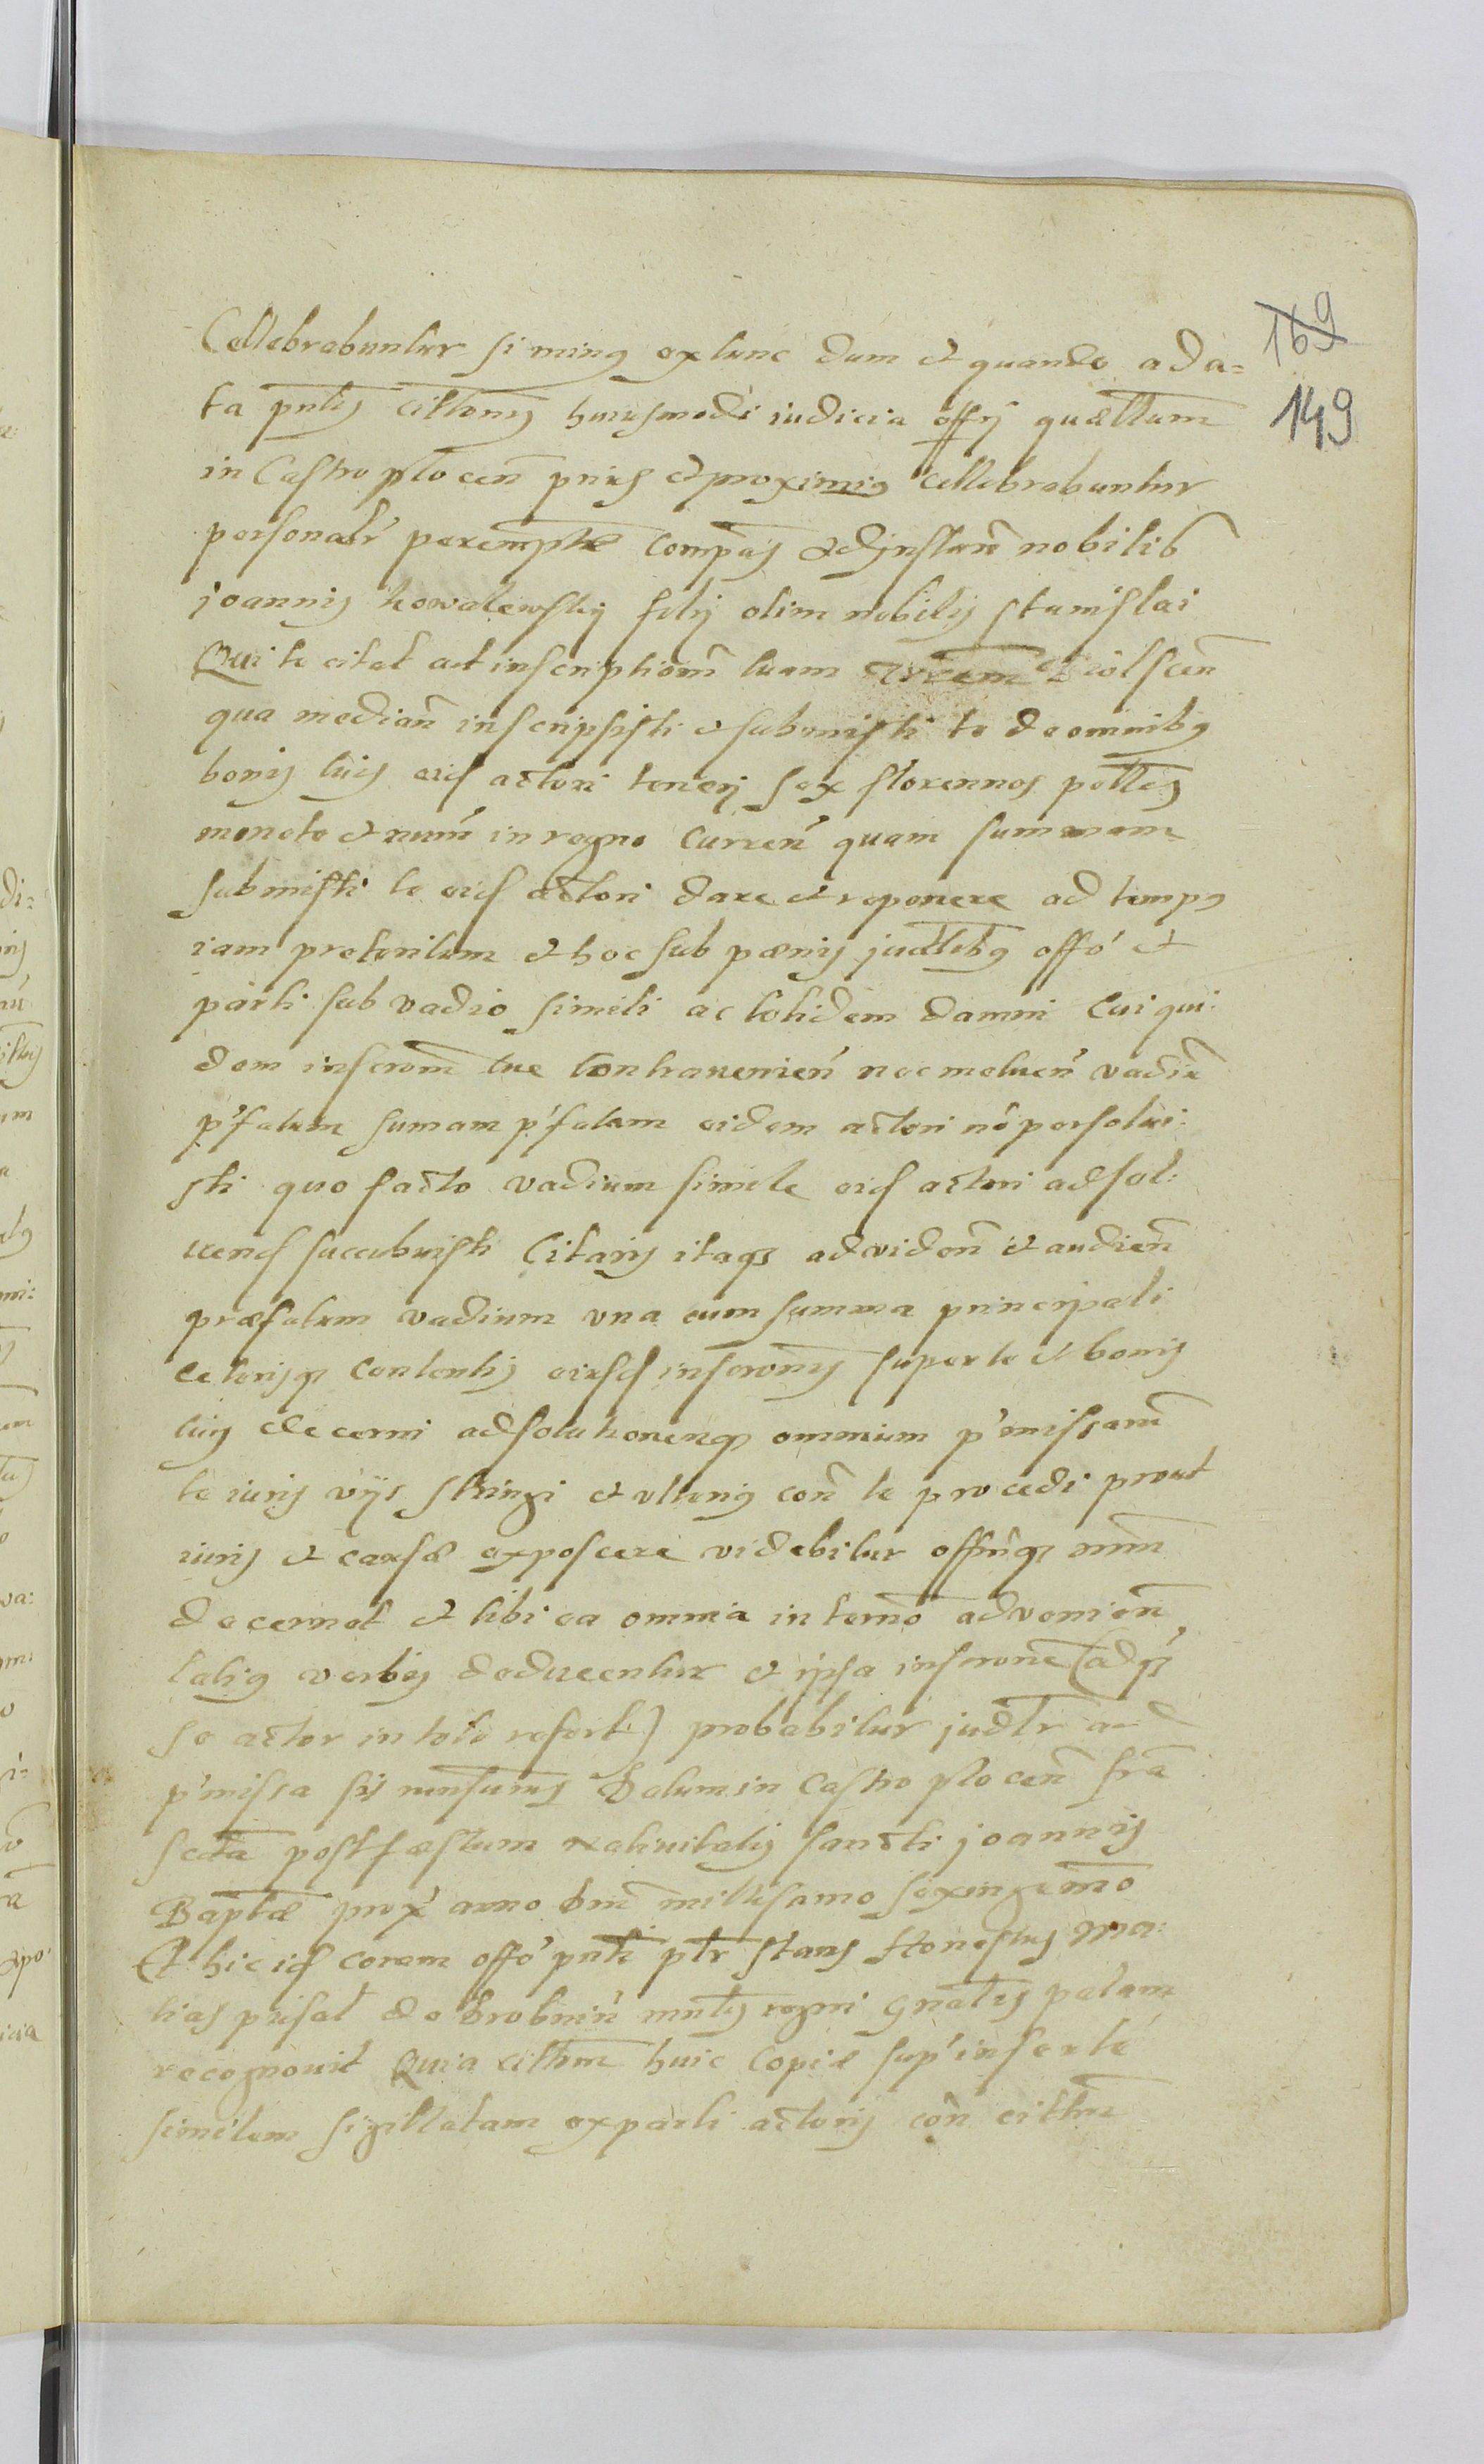 169
149
Cellebrabuntur si minus extunc dum et quando a da=
ta pntis cittonis huiusmodi iudicia offÿ quællum
in Castro plocen prius et proximius cellebrabuntur
personalr peremptæ compas ad instan nobilis
joannis kowalewskij filij olim nobilis Stanislai
Qui te citat ad inscriptionem tuam
qua median inscripsisti et submisisti te de omnibus
bonis tuis eid actori teneri sex florennos polles
monete et num in regno curren quam summam
submisti te eid actori dare et reponere ad tempus
iam preteritum et hoc sub pænis judlibus offo et
parti sub vadio simili ac totidem damni Cui qui:
dem inscronem tue contravenien nec metuen vadiu
p'fatum sumam p'fatam eidem actori no persolui:
sti quo facto vadium simile eid actori ad sol:
uend succubuisti Citaris itaq ad viden et audien
præfatum vadium una cum summa principali
ceterisq contentis eiusd inscronis super te et bonis
tuis decerni ad solutionemq omnium p'missorum
te iuris vijs stringi et ulterius con te procedi prout
iuris et causæ exposcere videbitur offmq nrm
decernet et tibi ea omnia in termo advenien
latius verbis deducentur et ipsa inscrone (ad q
se actor in toto refert) probabitur judlr ad
p'missa sis rensurus Datum in Castro plocen fra
scda post festum nativitatis sancti joannis
Baptæ prox anno dni millesimo sexingemo
Et hic id coram offo pnti plr stans Honestus Ma:
tias prisat de Drobnin mntlis regni gnalis palam
recognovit Quia cittnem huic copiæ sup' inserte
similem sigillatam ex parti actoris con cittm